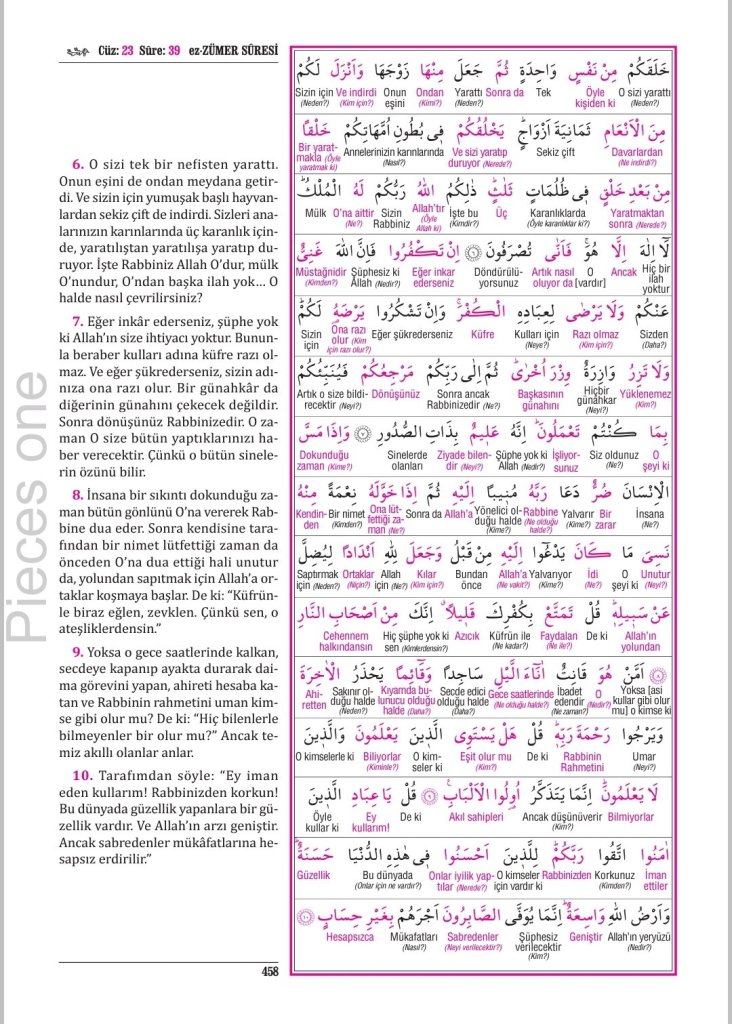 Cüz: 23 Sûre: 39 ez-ZÜMER SÛRESİ
6. O sizi tek bir nefisten yarattı.
Onun eşini de ondan meydana getir-
di. Ve sizin için yumuşak başlı hayvan-
lardan sekiz çift de indirdi. Sizleri ana-
larınızın karınlarında üç karanlık için-
de, yaratılıştan yaratılışa yaratıp du-
ruyor. İşte Rabbiniz Allah O’dur, mülk
O’nundur, O’ndan başka ilah yok... O
halde nasıl çevrilirsiniz?
7. Eğer inkâr ederseniz, şüphe yok
ki Allah’ın size ihtiyacı yoktur. Bunun-
la beraber kulları adına küfre razı ol-
maz. Ve eğer şükrederseniz, sizin adı-
nıza ona razı olur. Bir günahkâr da
diğerinin günahını çekecek değildir.
Sonra dönüşünüz Rabbinizedir. O za-
man O size bütün yaptıklarınızı ha-
ber verecektir. Çünkü o bütün sinele-
rin özünü bilir.
8. İnsana bir sıkıntı dokunduğu za-
man bütün gönlünü O’na vererek Rab-
bine dua eder. Sonra kendisine tara-
fından bir nimet lütfettiği zaman da
önceden O’na dua ettiği hali unutur
da, yolundan sapıtmak için Allah’a or-
taklar koşmaya başlar. De ki: “Küfrün-
le biraz eğlen, zevklen. Çünkü sen, o
ateşliklerdensin.”
9. Yoksa o gece saatlerinde kalkan,
secdeye kapanıp ayakta durarak dai-
ma görevini yapan, ahireti hesaba ka-
tan ve Rabbinin rahmetini uman kim-
se gibi olur mu? De ki: “Hiç bilenlerle
bilmeyenler bir olur mu?” Ancak te-
miz akıllı olanlar anlar.
10. Tarafımdan söyle: “Ey iman
eden kullarım! Rabbinizden korkun!
Bu dünyada güzellik yapanlara bir gü-
zellik vardır. Ve Allah’ın arzı geniştir.
Ancak sabredenler mükâfatlarına he-
sapsız erdirilir.”
458
خَلَقَكُمْ مِنْ نَفْسٍ وَاحِدَةٍ ثُمَّ جَعَلَ مِنْهَا زَوْجَهَا وَاَنْزَلَ لَكُمْ
O sizi yarattı Öyle kişiden ki Tek Sonra da Yarattı Ondan Onun eşini Ve indirdi Sizin için
(Neden?) (Neden?) (Kimi?) (Kim için?) (Neden?)
مِنَ الْاَنْعَامِ ثَمَانِيَةَ اَزْوَاجٍۜ يَخْلُقُكُمْ ف۪ي بُطُونِ اُمَّهَاتِكُمْ خَلْقًا
Davarlardan Sekiz çift Ve sizi yaratıp duruyor Annelerinizin karınlarında Bir yarat-makla
(Ne indirdi?) (Nerede?) (Nasıl?) (Öyle yaratmak ki)
مِنْ بَعْدِ خَلْقٍ ف۪ي ظُلُمَاتٍ ثَلٰثٍۜ ذٰلِكُمُ اللّٰهُ رَبُّكُمْ لَهُ الْمُلْكُۜ
Yaratmaktan sonra Karanlıklarda Üç İşte bu Allah’tır Sizin Rabbiniz O’na aittir Mülk
(Nerede?) (Öyle karanlıklar ki?) (Kimdir?) (Öyle Allah ki) (Ne?)
لَٓا اِلٰهَ اِلَّا هُوَۚ فَاَنّٰى تُصْرَفُونَ ﴿٦﴾ اِنْ تَكْفُرُوا فَاِنَّ اللّٰهَ غَنِيٌّ
Hiç bir ilah yoktur Ancak O [vardır] Artık nasıl oluyor da Döndürülü-yorsunuz Eğer inkar ederseniz Şüphesiz ki Allah Müstağnidir
(Nedir?) (Kimden?)
عَنْكُمْ وَلَا يَرْضٰى لِعِبَادِهِ الْكُفْرَۚ وَاِنْ تَشْكُرُوا يَرْضَهُ لَكُمْۜ
Sizden Razı olmaz Kulları için Küfre Eğer şükrederseniz Ona razı olur Sizin için
(Daha?) (Kim için?) (Neye?) (Kim için razı olur?)
وَلَا تَزِرُ وَازِرَةٌ وِزْرَ اُخْرٰىۜ ثُمَّ اِلٰى رَبِّكُمْ مَرْجِعُكُمْ فَيُنَبِّئُكُمْ
Yüklenemez Hiçbir günahkar Başkasının günahını Sonra ancak Rabbinizedir Dönüşünüz Artık o size bildi-recektir
(Kim?) (Neyi?) (Ne?) (Neyi?)
بِمَا كُنْتُمْ تَعْمَلُونَۜ اِنَّهُ عَل۪يمٌ بِذَاتِ الصُّدُورِ ﴿٧﴾ وَاِذَا مَسَّ
O şeyi ki Siz oldunuz İşliyor-sunuz Şüphe yok ki Allah Ziyade bilen-dir Sinelerde olanları Dokunduğu zaman
(Ne?) (Nedir?) (Neyi?) (Kime?)
الْاِنْسَانَ ضُرٌّ دَعَا رَبَّهُ مُن۪يبًا اِلَيْهِ ثُمَّ اِذَا خَوَّلَهُ نِعْمَةً مِنْهُ
İnsana Bir zarar Yalvarır Rabbine Yönelici ol-duğu halde Allah’a Sonra da Ona lüt-fettiği za-man Bir nimet Kendin-den
(Ne?) (Kime?) (Ne olduğu halde?) (Kime?) (Ne?) (Kimden?)
نَسِيَ مَا كَانَ يَدْعُٓوا اِلَيْهِ مِنْ قَبْلُ وَجَعَلَ لِلّٰهِ اَنْدَادًا لِيُضِلَّ
Unutur O şeyi ki İdi Yalvarıyor Allah’a Bundan önce Kılar Allah için Ortaklar Saptırmak için
(Neyi?) (Ne?) (Kime?) (Ne vakit?) (Kim için?) (Ne?) (Niçin?) (Neden?)
عَنْ سَب۪يلِهِۜ قُلْ تَمَتَّعْ بِكُفْرِكَ قَل۪يلًاۗ اِنَّكَ مِنْ اَصْحَابِ النَّارِ
Allah’ın yolundan De ki Faydalan Küfrün ile Azıcık Hiç şüphe yok ki sen Cehennem halkındansın
(Ne ile?) (Ne kadar?) (Kimlerdensin?)
﴿٨﴾ اَمَّنْ هُوَ قَانِتٌ اٰنَٓاءَ الَّيْلِ سَاجِدًا وَقَٓائِمًا يَحْذَرُ الْاٰخِرَةَ
Yoksa [asi kullar gibi olur mu] o kimse ki O İbadet edendir Gece saatlerinde Secde edici olduğu halde Kıyamda bu-lunucu olduğu halde Sakınır ol-duğu halde Ahi-retten
(Nedir?) (Ne zaman?) (Ne olduğu halde?) (Daha?) (Daha?) (Neden?)
وَيَرْجُوا رَحْمَةَ رَبِّهِۜ قُلْ هَلْ يَسْتَوِي الَّذ۪ينَ يَعْلَمُونَ وَالَّذ۪ينَ
Umar Rabbinin Rahmetini De ki Eşit olur mu O kim-seler ki Biliyorlar O kimselerle ki
(Neyi?) (Kim?) (Kiminle?)
لَا يَعْلَمُونَۜ اِنَّمَا يَتَذَكَّرُ اُو۬لُوا الْاَلْبَابِ۟ ﴿٩﴾ قُلْ يَا عِبَادِ الَّذ۪ينَ
Bilmiyorlar Ancak düşünüverir Akıl sahipleri De ki Ey kullarım! Öyle kullar ki
(Kim?)
اٰمَنُوا اتَّقُوا رَبَّكُمْۜ لِلَّذ۪ينَ اَحْسَنُوا ف۪ي هٰذِهِ الدُّنْيَا حَسَنَةٌۜ
İman ettiler Korkunuz Rabbinizden O kimseler için vardır ki Onlar iyilik yap-tılar Bu dünyada Güzellik
(Kimden?) (Nerede?) (Onlar için ne vardır?)
وَاَرْضُ اللّٰهِ وَاسِعَةٌۜ اِنَّمَا يُوَفَّى الصَّابِرُونَ اَجْرَهُمْ بِغَيْرِ حِسَابٍ ﴿١٠﴾
Allah’ın yeryüzü Geniştir Şüphesiz verilecektir Sabredenler Mükafatları Hesapsızca
(Nedir?) (Kim?) (Neyi verilecektir?) (Nasıl?)
Pieces one